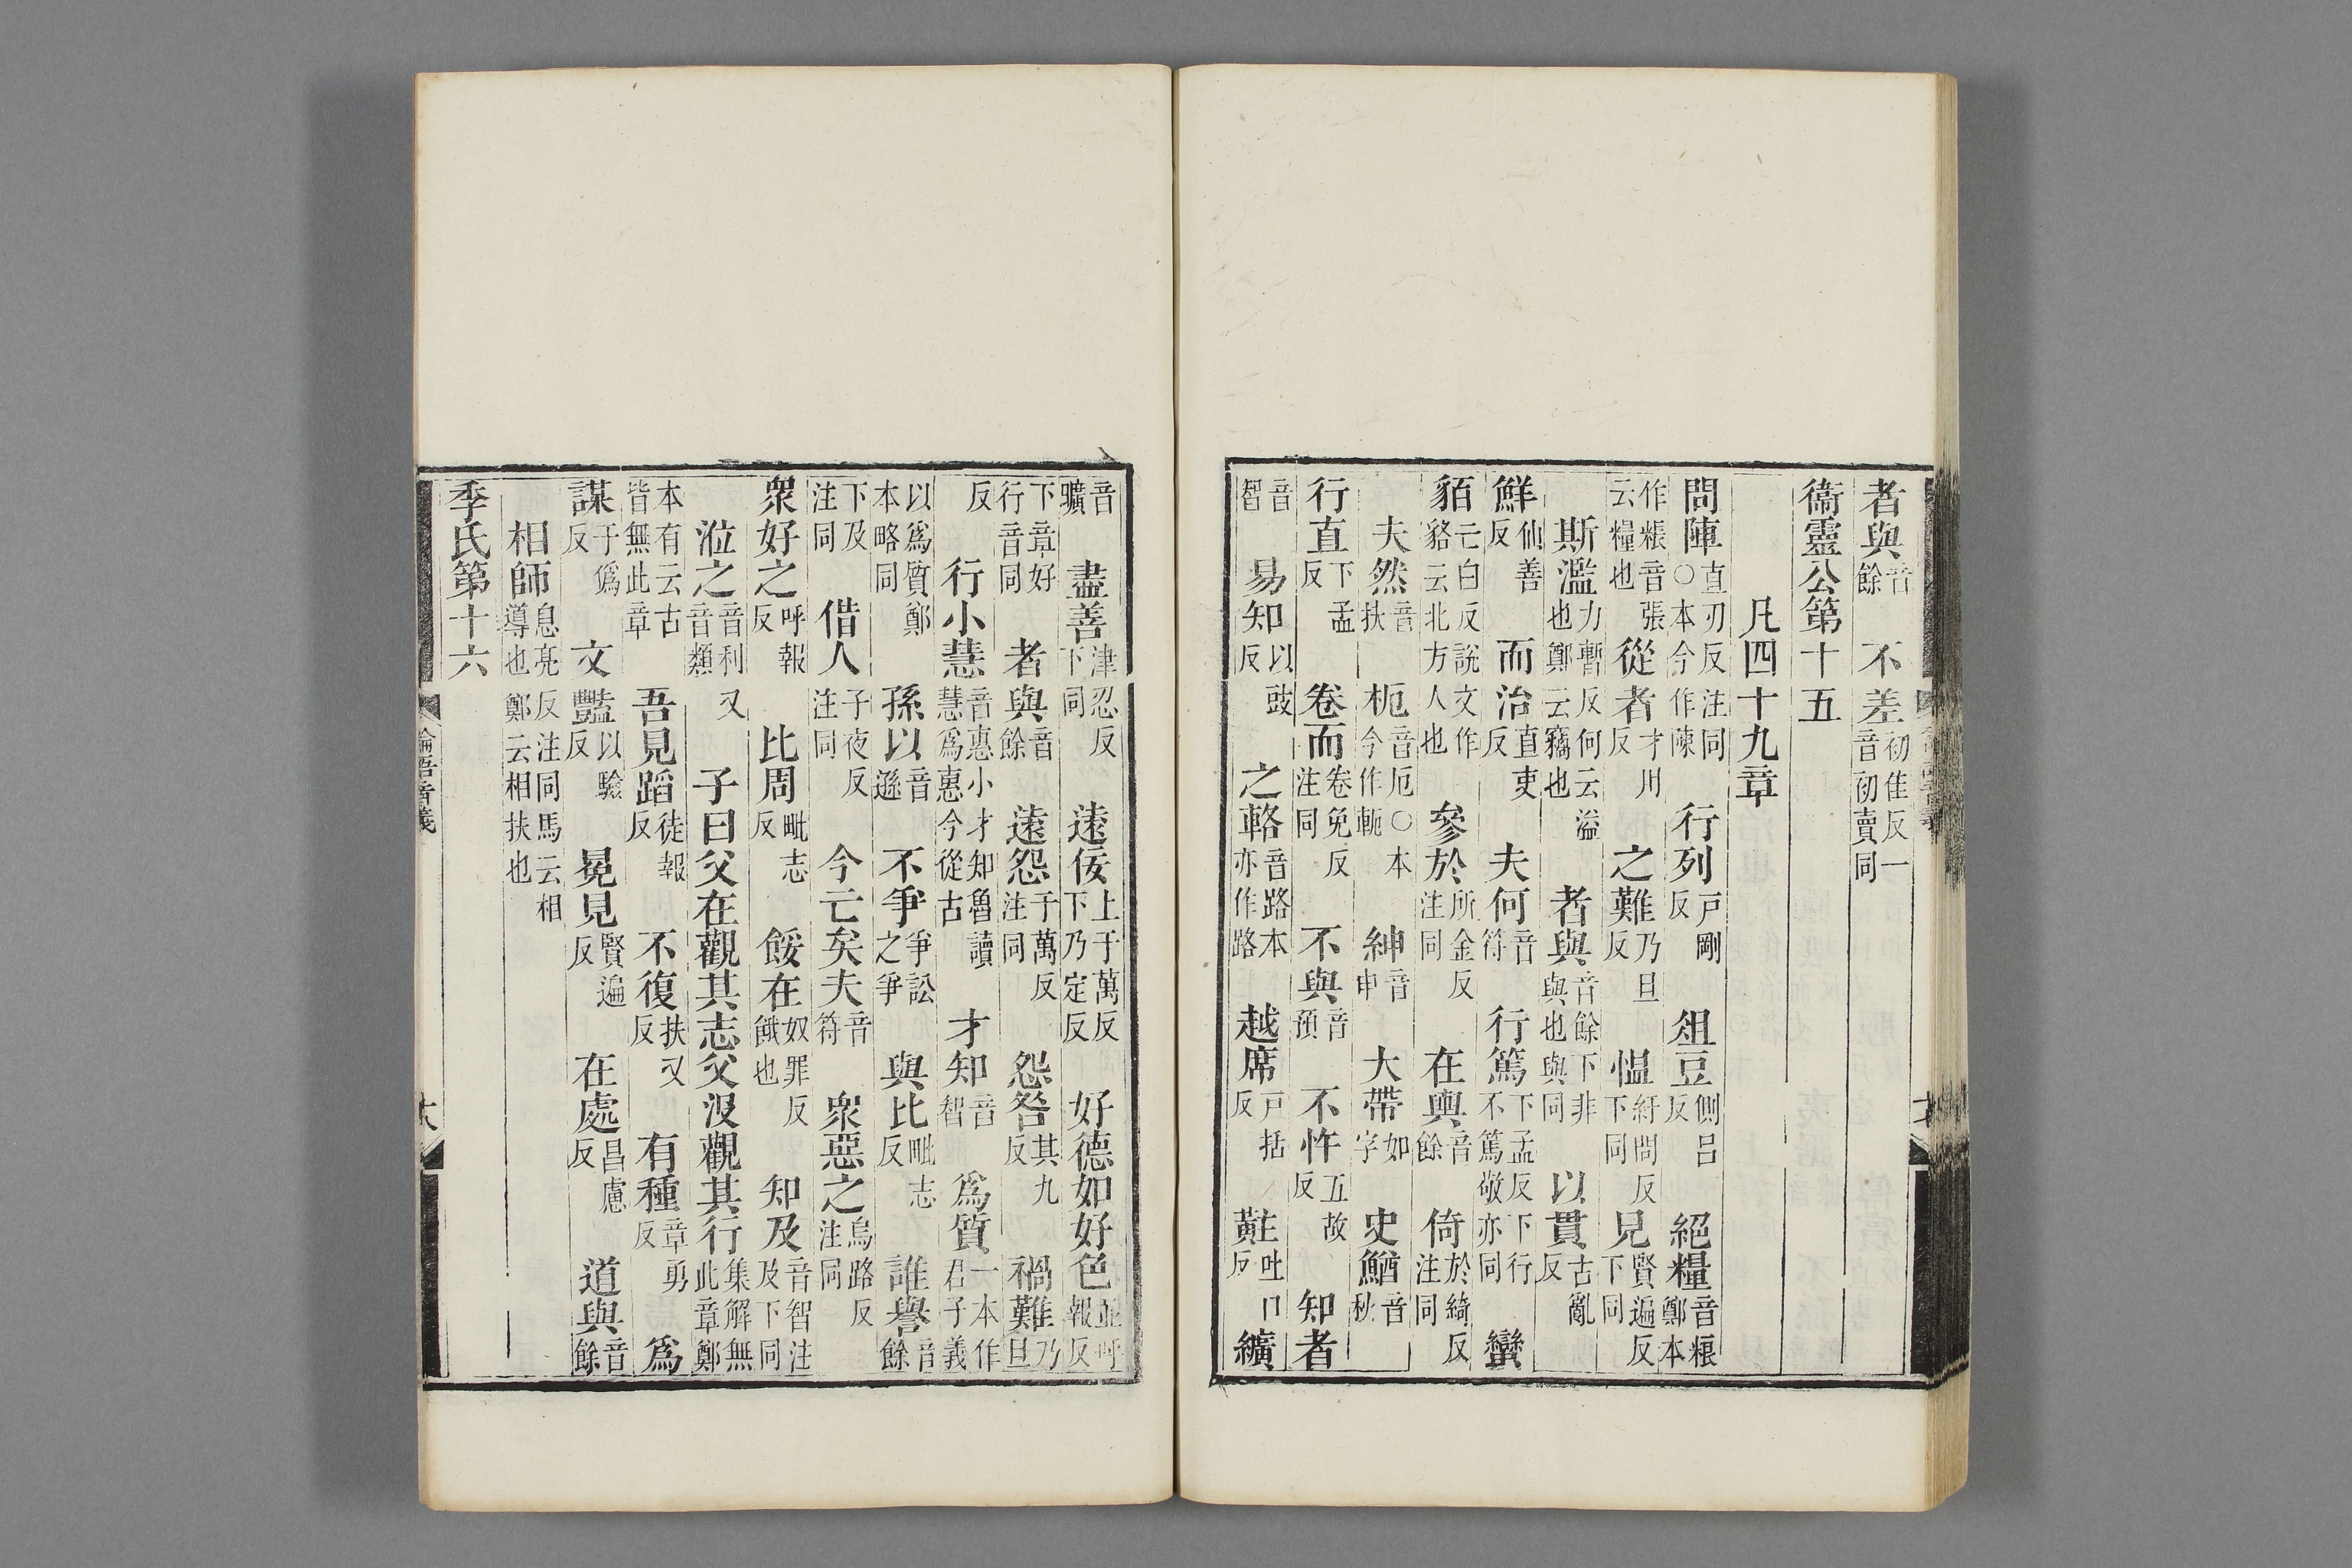 者與音餘　不差初佳反一音初賣同
衞靈公第十五
凡四十九章
問陣直刃反注同○本今作陳　行列戸剛反　俎豆側呂反　絕糧音粮鄭本
作粻音張云糧也　從者才川反　之難乃旦反　慍紆問反下同　見賢遍反下同
斯濫力暫反何云溢也鄭云竊也　者與音餘下非與也與同　以貫古亂反
鮮仙善反　而治直吏反　夫何音符　行篤下孟反下行不篤敬亦同　蠻
貊亡白反說文作貉云北方人也　參於所金反注同　在輿音餘　倚於綺反注同
夫然音扶　枙音厄○本今作軛　紳音申　大帶如字　史鰌音秋
行直下孟反　卷而卷免反注同　不與音預　不忤五故反　知者
音智　易知以豉反　之輅音路本亦作路　越席戸括反　黈吐口反　纊
音曠　盡善津忍反下同　遠佞上于萬反下乃定反　好德如好色並呼報反
下章好行音同　者與音餘　遠怨于萬反注同　怨咎其九反　禍難乃旦
反　行小慧音惠小才知魯讀慧爲惠今從古　才知音智　爲質一本作君子義
以爲質鄭本略同　孫以音遜　不爭爭訟之爭　與比毗志反　誰譽音餘
下及注同　借人子夜反注同　今亡矣夫音符　衆惡之烏路反注同
衆好之呼報反　比周毗志反　餒在奴罪反餓也　知及音智注及下同
涖之音利又音類　子曰父在觀其志父沒觀其行集解無此章鄭
本有云古皆無此章　吾見蹈徒報反　不復扶又反　有種章勇反　爲
謀于僞反　文豔以驗反　冕見賢遍反　在處昌慮反　道與音餘
相師息亮反注同馬云相導也鄭云相扶也
季氏第十六
論語音義